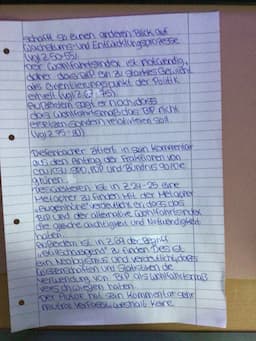 schafft so einen anderen Blick auf
Wandlungs- und Entwicklungsprozesse
(vgl. Z. 50-55).
Der Wohlfahrtsindex ist notwendig,
daher dass BIP ein zu starkes Gewicht
als Orientierungspunkt der Politik
erhielt (vgl. Z. 67-75).
Außerdem sagt er noch, dass
das Wohlfahrtsmaß das BIP nicht
ersetzen sondern relativieren soll
(vgl. Z. 75-80).
Diefenbacher zitiert in sein Kommentar
aus dem Antrag der Fraktionen von
CDU/CSU, SPD, FDP und Bündnis 90/Die
grünen.
Des weiteren ist in Z. 24-25 eine
Metapher zu finden. Mit der Metapher
"Augenhöhe" verdeutlicht er, dass das
BIP und der alternative Wohlfahrtsindex
die gleiche Wichtigkeit und Notwendigkeit
haben.
Außerdem ist in Z. 39 der Begriff
zu finden. Dies ist
ein Neologismus und verdeutlicht, dass
Wissenschaften und Statistiken die
Verwendung von BIP als Wohlfahrtsmaß
verschwiesen haben.
Der Autor hat sein Kommentar sehr
neutral verfasst, weshalb keine